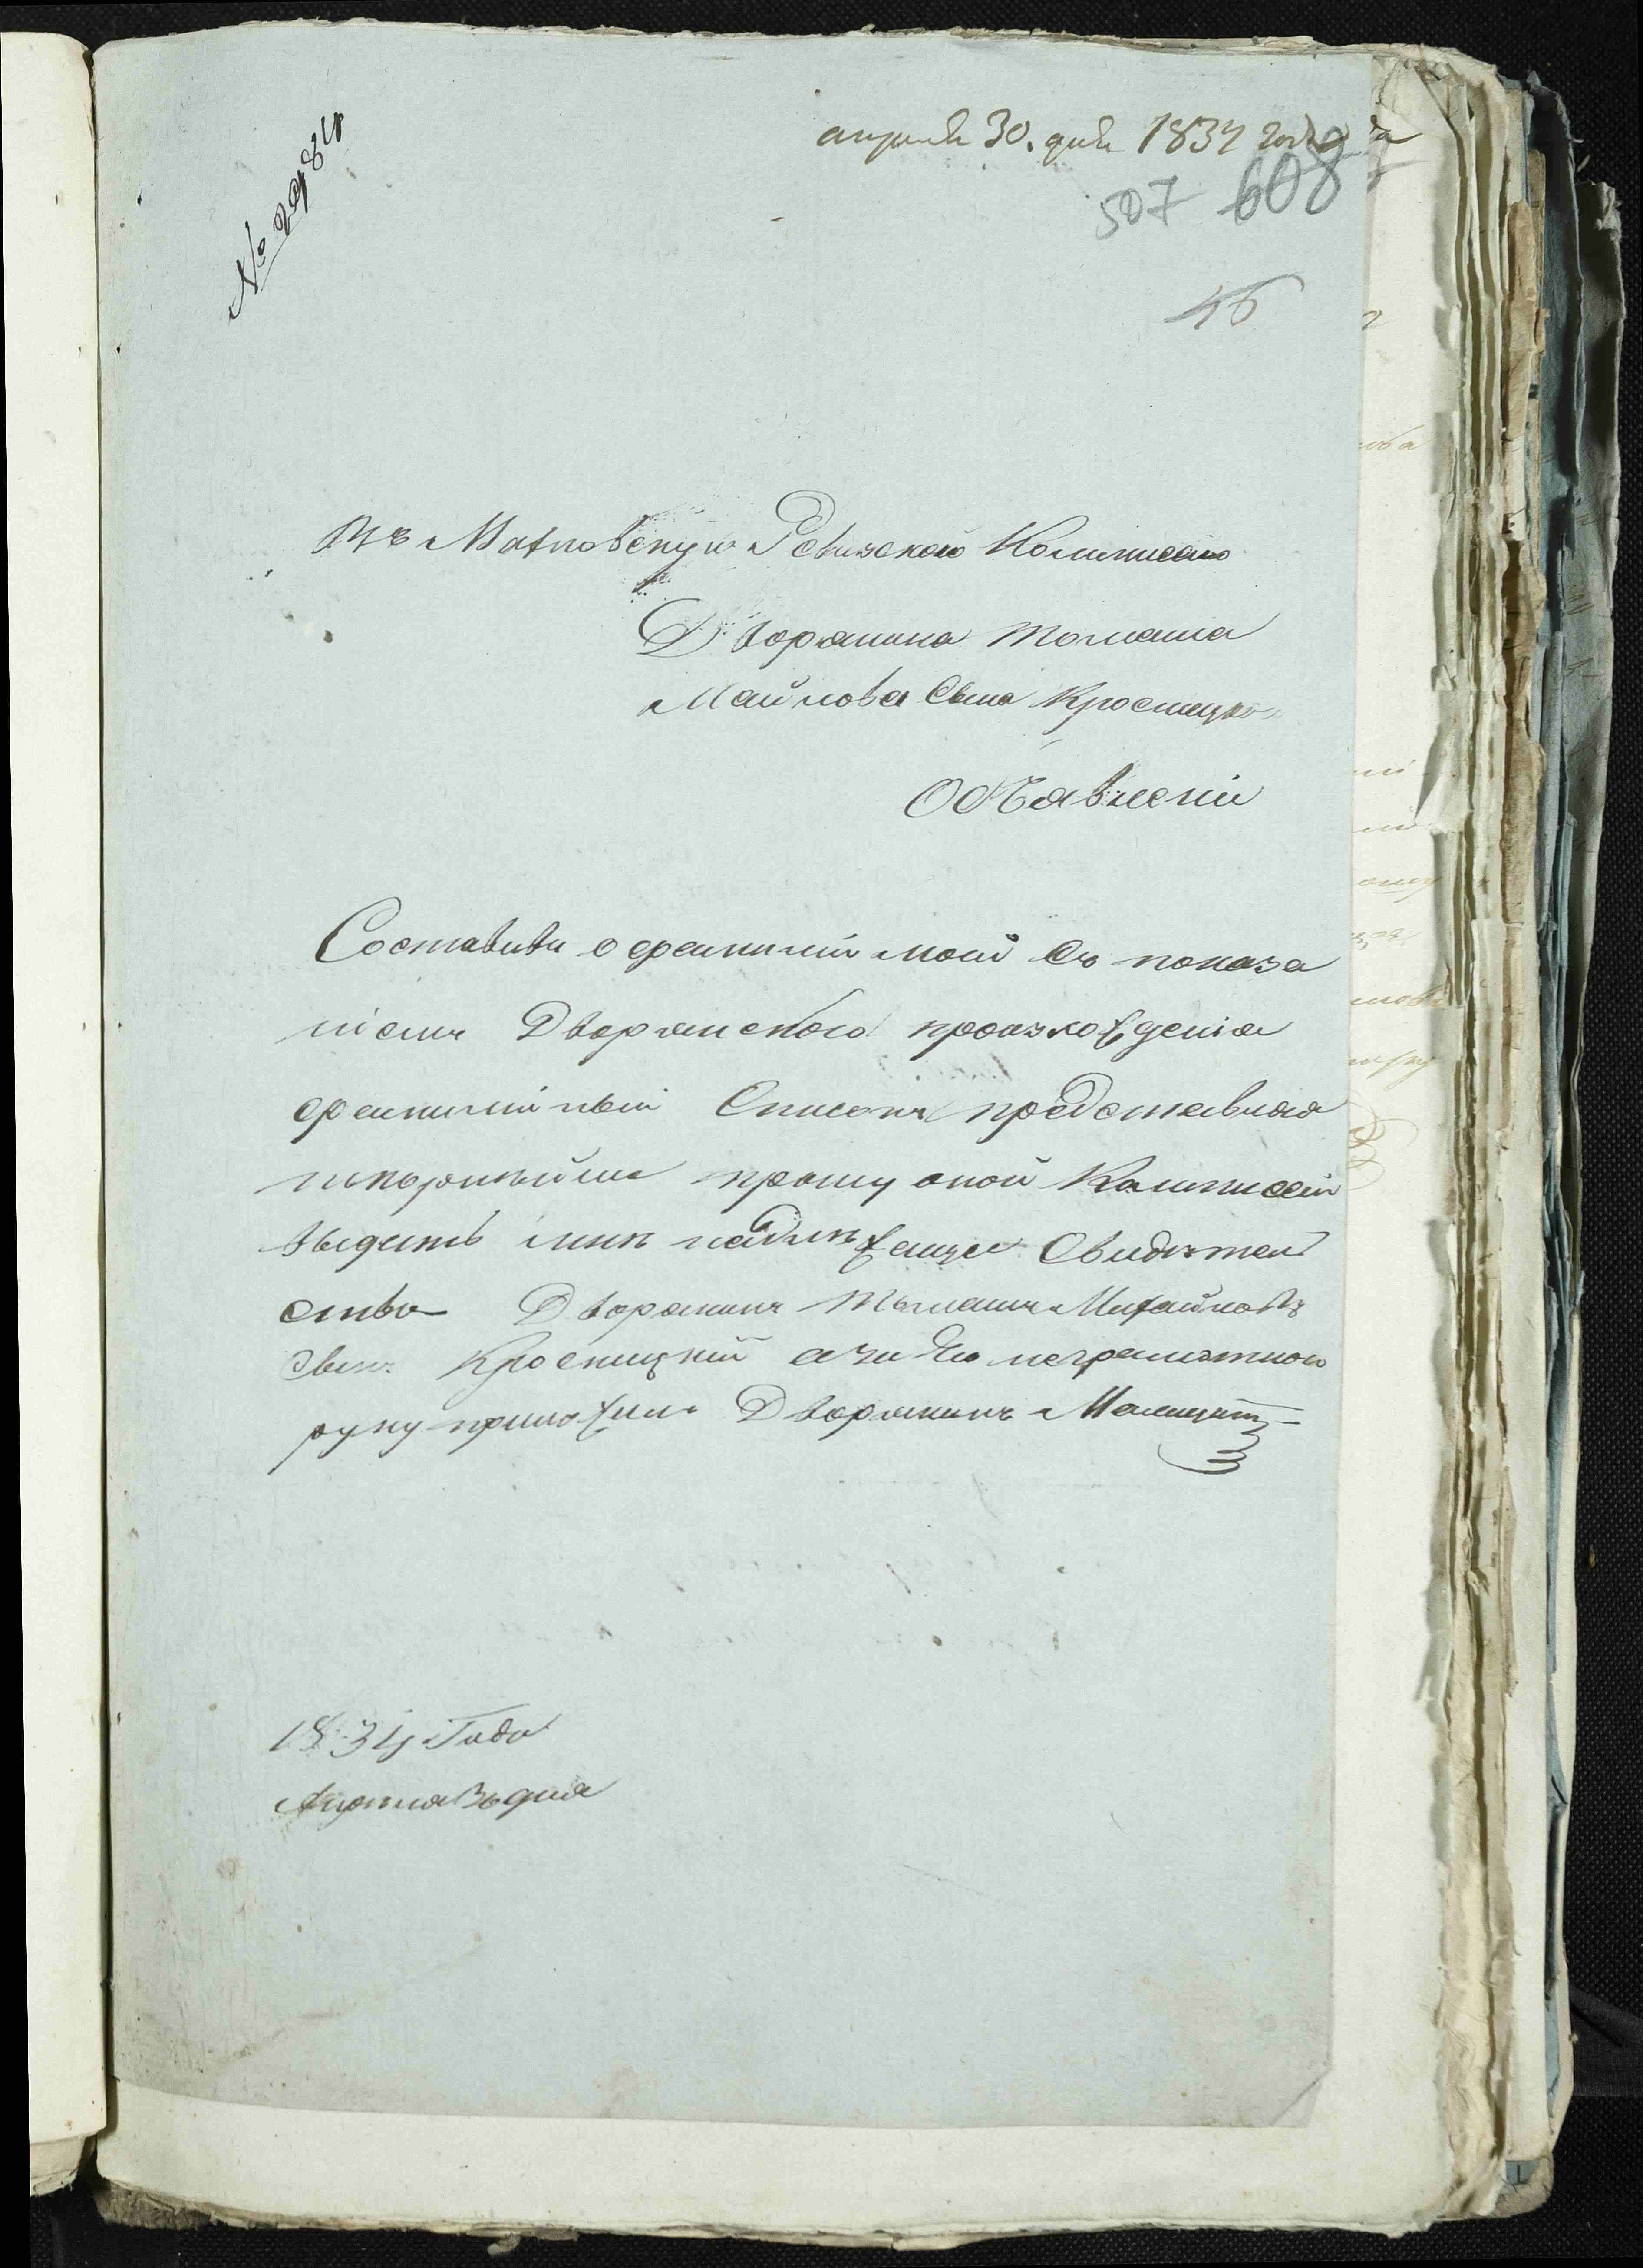 № 2984
апреля 30. дня 1834 года
507 608
46
Въ Махновскую Ревизскою Коммисию
Дворянина Томаша
Майлова Сына Кросницко
Объявленіи
Составивъ о фамиліи моей Съ показа
ніемъ Дворянского произхожденія
фамилійный Списокъ представляя
покорнѣйше прошу оной Коммисеіи
выдать мнѣ надлѣжащее Свидѣтел
ство Дворянинъ Томашъ Михайловъ
Сынъ Кросницкій а за Его неграмотного
руку приложилъ Дворянинъ
1834 Года
Апреля 30 дня